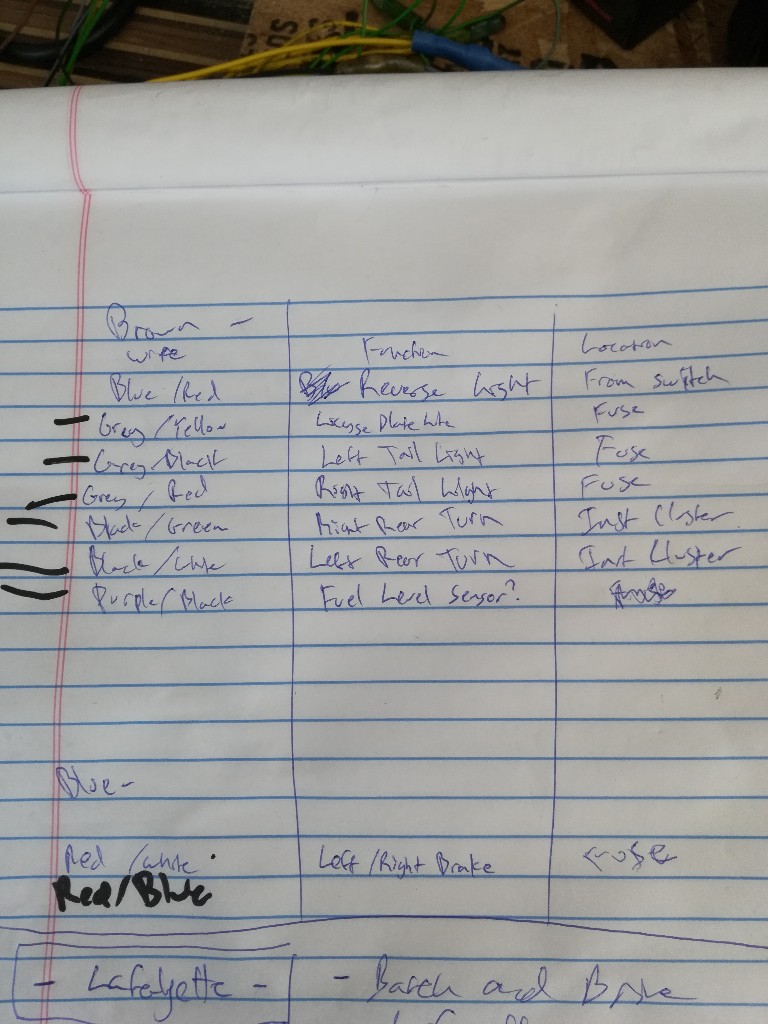 Brown -
wire Function Location
Blue /Red Reverse Light From switch
Grey /Yellow License Plate Lite Fuse
Grey/Black Left Tail Light Fuse
Grey / Red Right Tail Light Fuse
Black/Green Right Rear Turn Inst Cluster
Black/white Left Rear Turn Inst Cluster
Purple/Black Fuel Level Sensor?
Blue-
Red /white Left /Right Brake
Red/Blue
- Lafayette - - Batch and